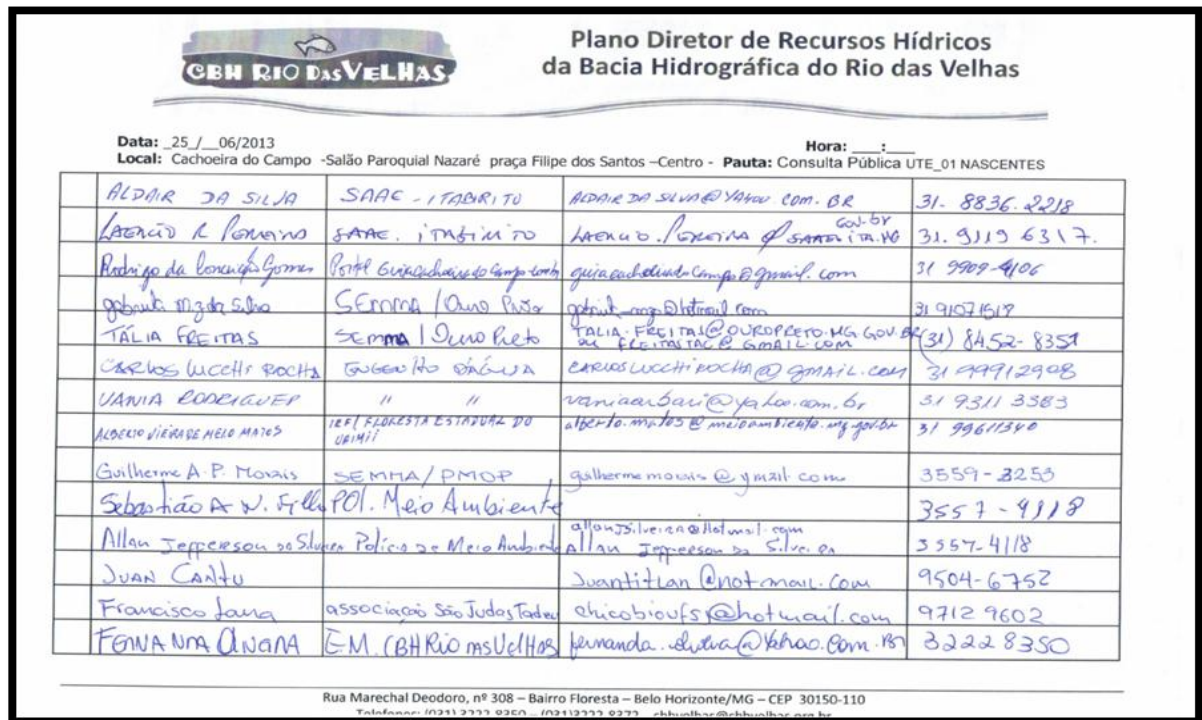 CBH RIO DAS VELHAS
Plano Diretor de Recursos Hídricos
da Bacia Hidrográfica do Rio das Velhas
Data: _25_/__06/2013 Hora: ___:___
Local: Cachoeira do Campo -Salão Paroquial Nazaré praça Filipe dos Santos –Centro - Pauta: Consulta Pública UTE_01 NASCENTES
ALDAIR DA SILVA SAAE - ITABIRITO ALDAIR DA SILVA@YAHOU.COM.BR 31-8836.2218
LAERCIO R PEREIRA SAAE. ITABIRITO LAERCIO.PEREIRA@SAAEITA.MG.GOV.BR 31.9119 6317.
Rodrigo da Conceição Gomes Portal Guiacachoeiradocampo.com.br guiacachoeiradocampo@gmail.com 31 9909-4106
da Silva SEMMA / Ouro Preto @hotmail.com 31 91071517
TÁLIA FREITAS SEMMA / Ouro Preto TALIA.FREITAS@OUROPRETO.MG.GOV.BR (31) 8452-8351
ou FREITASTAC@GMAIL.COM
CARLOS LUCCHI ROCHA ENGENHO D'ÁGUA CARLOSLUCCHIROCHA@GMAIL.COM 31 99912908
VANIA RODRIGUES " " vaniaarbari@yahoo.com.br 31 9311 3583
ALBERTO VIEIRA DE MELO MATOS IEF/ FLORESTA ESTADUAL DO UAIMII alberto.matos@meioambiente.mg.gov.br 31 99611340
Guilherme A. P. Morais SEMMA/PMOP guilhermemorais@ymail.com 3559-3253
Sebastião A N. Filho POl. Meio Ambiente 3557-4118
Allan Jepperson da Silveira Polícia de Meio Ambiente allanjsilveira@Hotmail.com 3557-4118
Allan Jepperson da Silveira
JUAN CANTU Juantitlan@hotmail.com 9504-6752
Francisco Lana associação São Judas Tadeu chicobioufs@hotmail.com 9712 9602
FERNANDA EM. CBH Rio das Velhas @Yahoo.com.Br 32228350
Rua Marechal Deodoro, nº 308 – Bairro Floresta – Belo Horizonte/MG – CEP 30150-110
Telefones: (031) 3222-8350 – (031)3222-8372 cbhvelhas@cbhvelhas.org.br